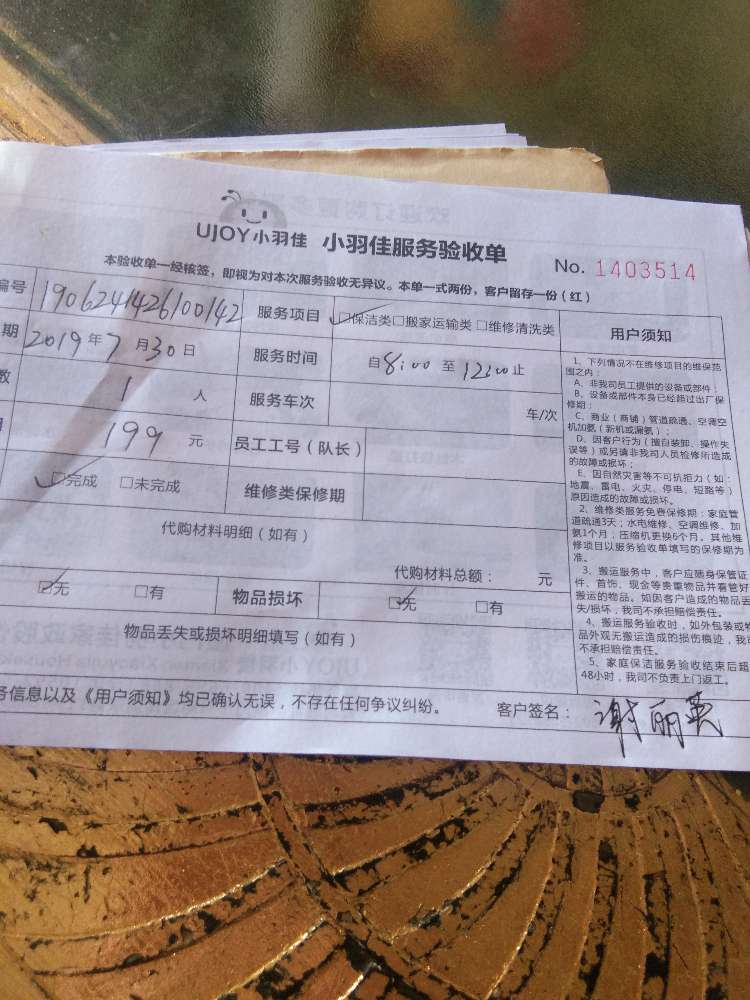 UJOY小羽佳 小羽佳服务验收单
No. 1403514
本验收单一经核签，即视为对本次服务验收无异议。本单一式两份，客户留存一份（红）
编号 1906241426100142 服务项目 ☑保洁类☐搬家运输类☐维修清洗类
期 2019年7月30日 服务时间 自8:00至12:00止
数 1 人 服务车次 车/次
199 元 员工工号（队长）
☑完成 ☐未完成 维修类保修期
代购材料明细（如有）
代购材料总额： 元
☑无 ☐有 物品损坏 ☑无 ☐有
物品丢失或损坏明细填写（如有）
务信息以及《用户须知》均已确认无误，不存在任何争议纠纷。 客户签名：谢丽英
用户须知
1、下列情况不在维修项目的维保范
围之内：
A、非我司员工提供的设备或部件；
B、设备或部件本身已经超过出厂保
修期；
C、商业（商铺）管道疏通、空调空
机加氨（新机或漏氨）；
D、因客户行为（擅自装卸、操作失
误等）或另请非我司人员检修所造成
的故障或损坏；
E、因自然灾害等不可抗拒力（如：
地震、雷电、火灾、停电、短路等）
原因造成的故障或损坏。
2、维修类服务免费保修期：家庭管
道疏通3天；水电维修、空调维修、加
氨1个月；压缩机更换6个月。其他维
修项目以服务验收单填写的保修期为
准。
3、搬运服务中，客户应随身保管证
件、首饰、现金等贵重物品并看管好
搬运的物品。如因客户造成的物品丢
失/损坏，我司不承担赔偿责任。
4、搬运服务验收时，如外包装或物
品外观无搬运造成的损伤痕迹，我司
不承担赔偿责任。
5、家庭保洁服务验收结束后超
48小时，我司不负责上门返工。